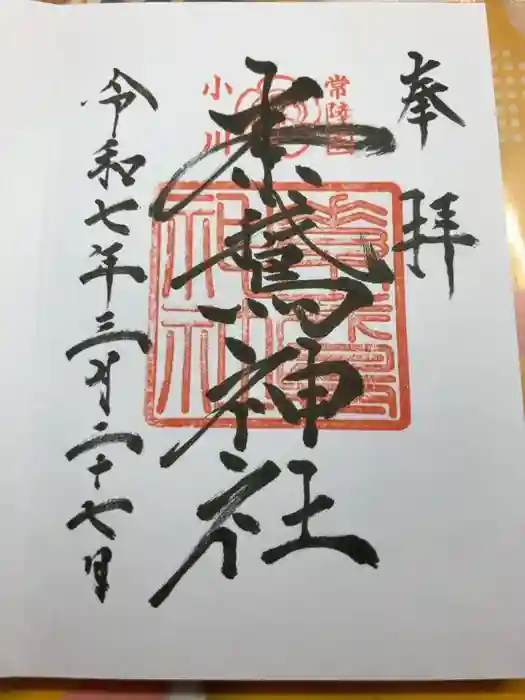 奉拝
常陸国
小川
素鵞神社
令和七年三月二十七日